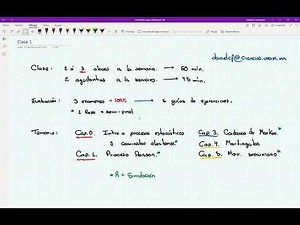 Clase 1
Clase: 2 ó 3 clases a la semana → 60 min.
2 ayudantías a la semana → 45 min.
Evaluación: 3 exámenes = 100% → 6 guías de ejercicios.
* 1 Repo = semi-final
Temario: Cap. 0. Intro a procesos estocásticos y caminatas aleatorias*
Cap. 1. Proceso Poisson.*
Cap. 3. Cadenas de Markov.*
Cap. 4. Martingalas
Cap. 5. Mov. browniano*
* R = Simulación